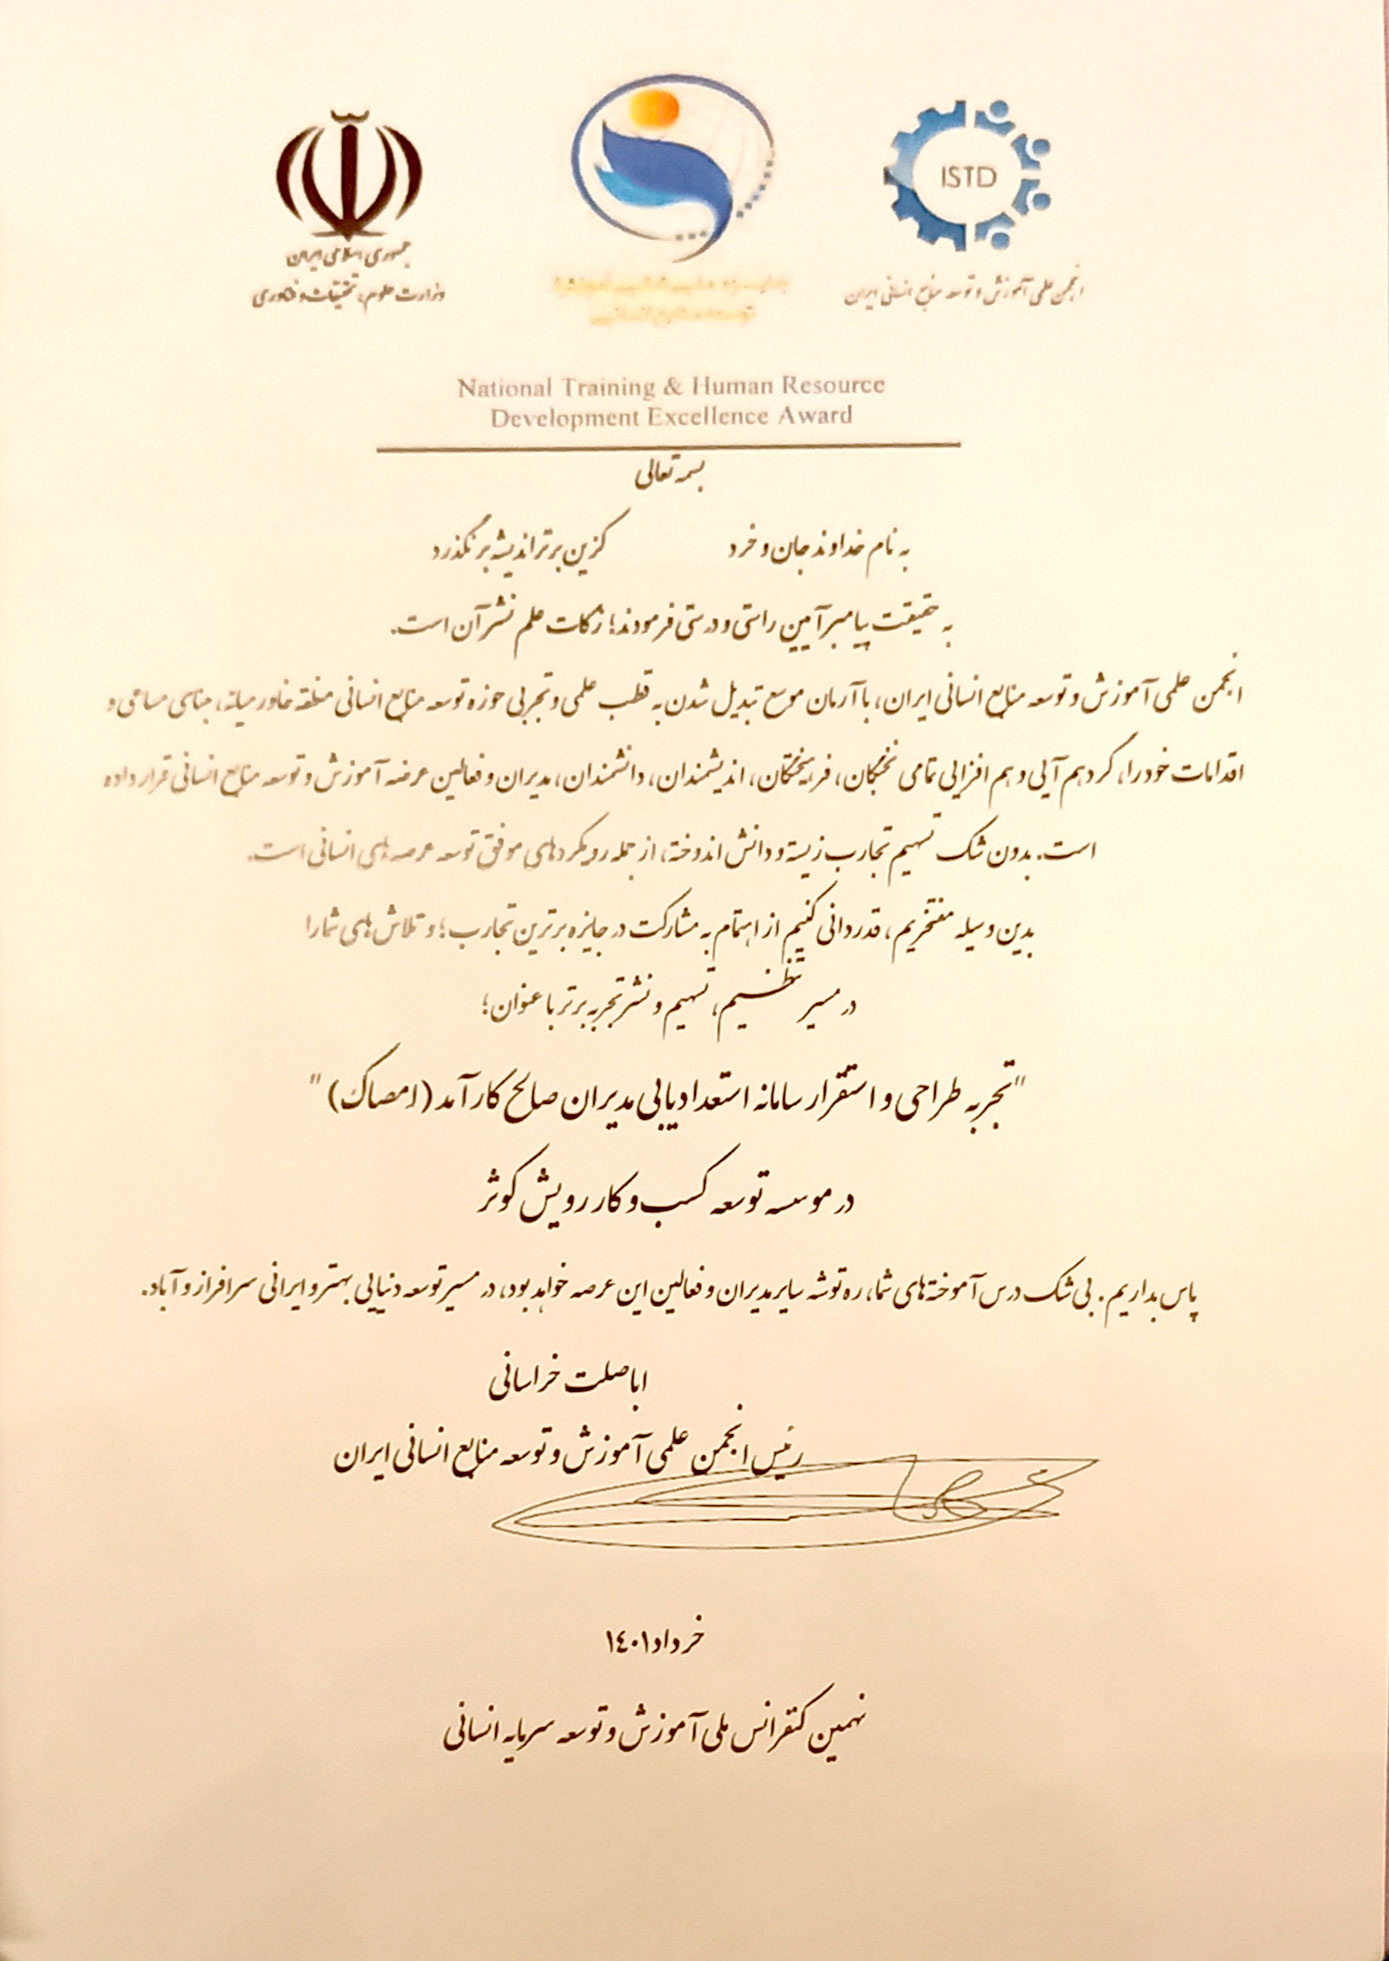 ISTD
جمهوری اسلامی ایران
وزارت علوم، تحقیقات و فناوری
انجمن علمی آموزش و توسعه منابع انسانی ایران
National Training & Human Resource
Development Excellence Award
بسمه تعالی
به نام خداوند جان و خرد کزین برتر اندیشه بر نگذرد
به حقیقت پیامبر آیین راستی و درستی فرمودند؛ زکات علم نشر آن است.
انجمن علمی آموزش و توسعه منابع انسانی ایران، با آرمان موسع تبدیل شدن به قطب علمی و تجربی حوزه توسعه منابع انسانی منطقه خاورمیانه، مبنای مساعی و
اقدامات خود را، گردهم آیی و هم افزایی تمامی نخبگان، فرهیختگان، اندیشمندان، دانشمندان، مدیران و فعالین عرصه آموزش و توسعه منابع انسانی قرار داده
است. بدون شک تسهیم تجارب زیسته و دانش اندوخته، از جمله رویکردهای موفق توسعه عرصه های انسانی است.
بدین وسیله مفتخریم، قدردانی کنیم از اهتمام به مشارکت در جایزه برترین تجارب؛ و تلاش های شما را
در مسیر تنظیم، تسهیم و نشر تجربه برتر با عنوان؛
"تجربه طراحی و استقرار سامانه استعدادیابی مدیران صالح کارآمد (امصاک)"
در موسسه توسعه کسب و کار رویش کوثر
پاس بداریم. بی شک درس آموخته های شما، ره توشه سایر مدیران و فعالین این عرصه خواهد بود، در مسیر توسعه دنیایی بهتر و ایرانی سرافراز و آباد.
اباصلت خراسانی
رئیس انجمن علمی آموزش و توسعه منابع انسانی ایران
خرداد ۱۴۰۱
نهمین کنفرانس ملی آموزش و توسعه سرمایه انسانی